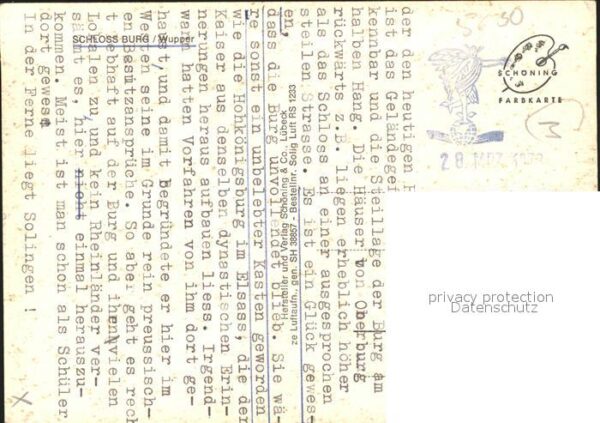 der den heutigen
ist das Geländege
kennbar und die Steillage der Burg am
halben Hang. Die Häuser von Oberburg
rückwärts z.B. liegen erheblich höher
als das Schloss an einer ausgesprochen
steilen Strasse. Es ist ein Glück gewes
en,
dass die Burg unvollendet blieb. Sie wä-
re sonst ein unbelebter Kasten geworden
wie die Hohkönigsburg im Elsass, die der
Kaiser aus denselben dynastischen Erin-
nerungen heraus aufbauen liess. Irgend-
wann hatten Vorfahren von ihm dort ge-
haust, und damit Begründete er hier im
Westen seine im Grunde rein preussisch-
en Besitzansprüche. So aber geht es rech
t lebhaft auf der Burg und ihren vielen
Lokalen zu, und kein Rheinländer ver-
säumt es, hier nicht einmal herauszu-
kommen. Meist ist man schon als Schüler
dort gewest
In der Ferne liegt Solingen !
SCHLOSS BURG / Wupper
Hersteller und Verlag Schöning & Co., Lübeck
ze Luftaufn., gen. SH 38657 - Bestellnr. Solig Luft RS 1233
SCHÖNING
FARBKARTE
3
privacy protection
Datenschutz
x